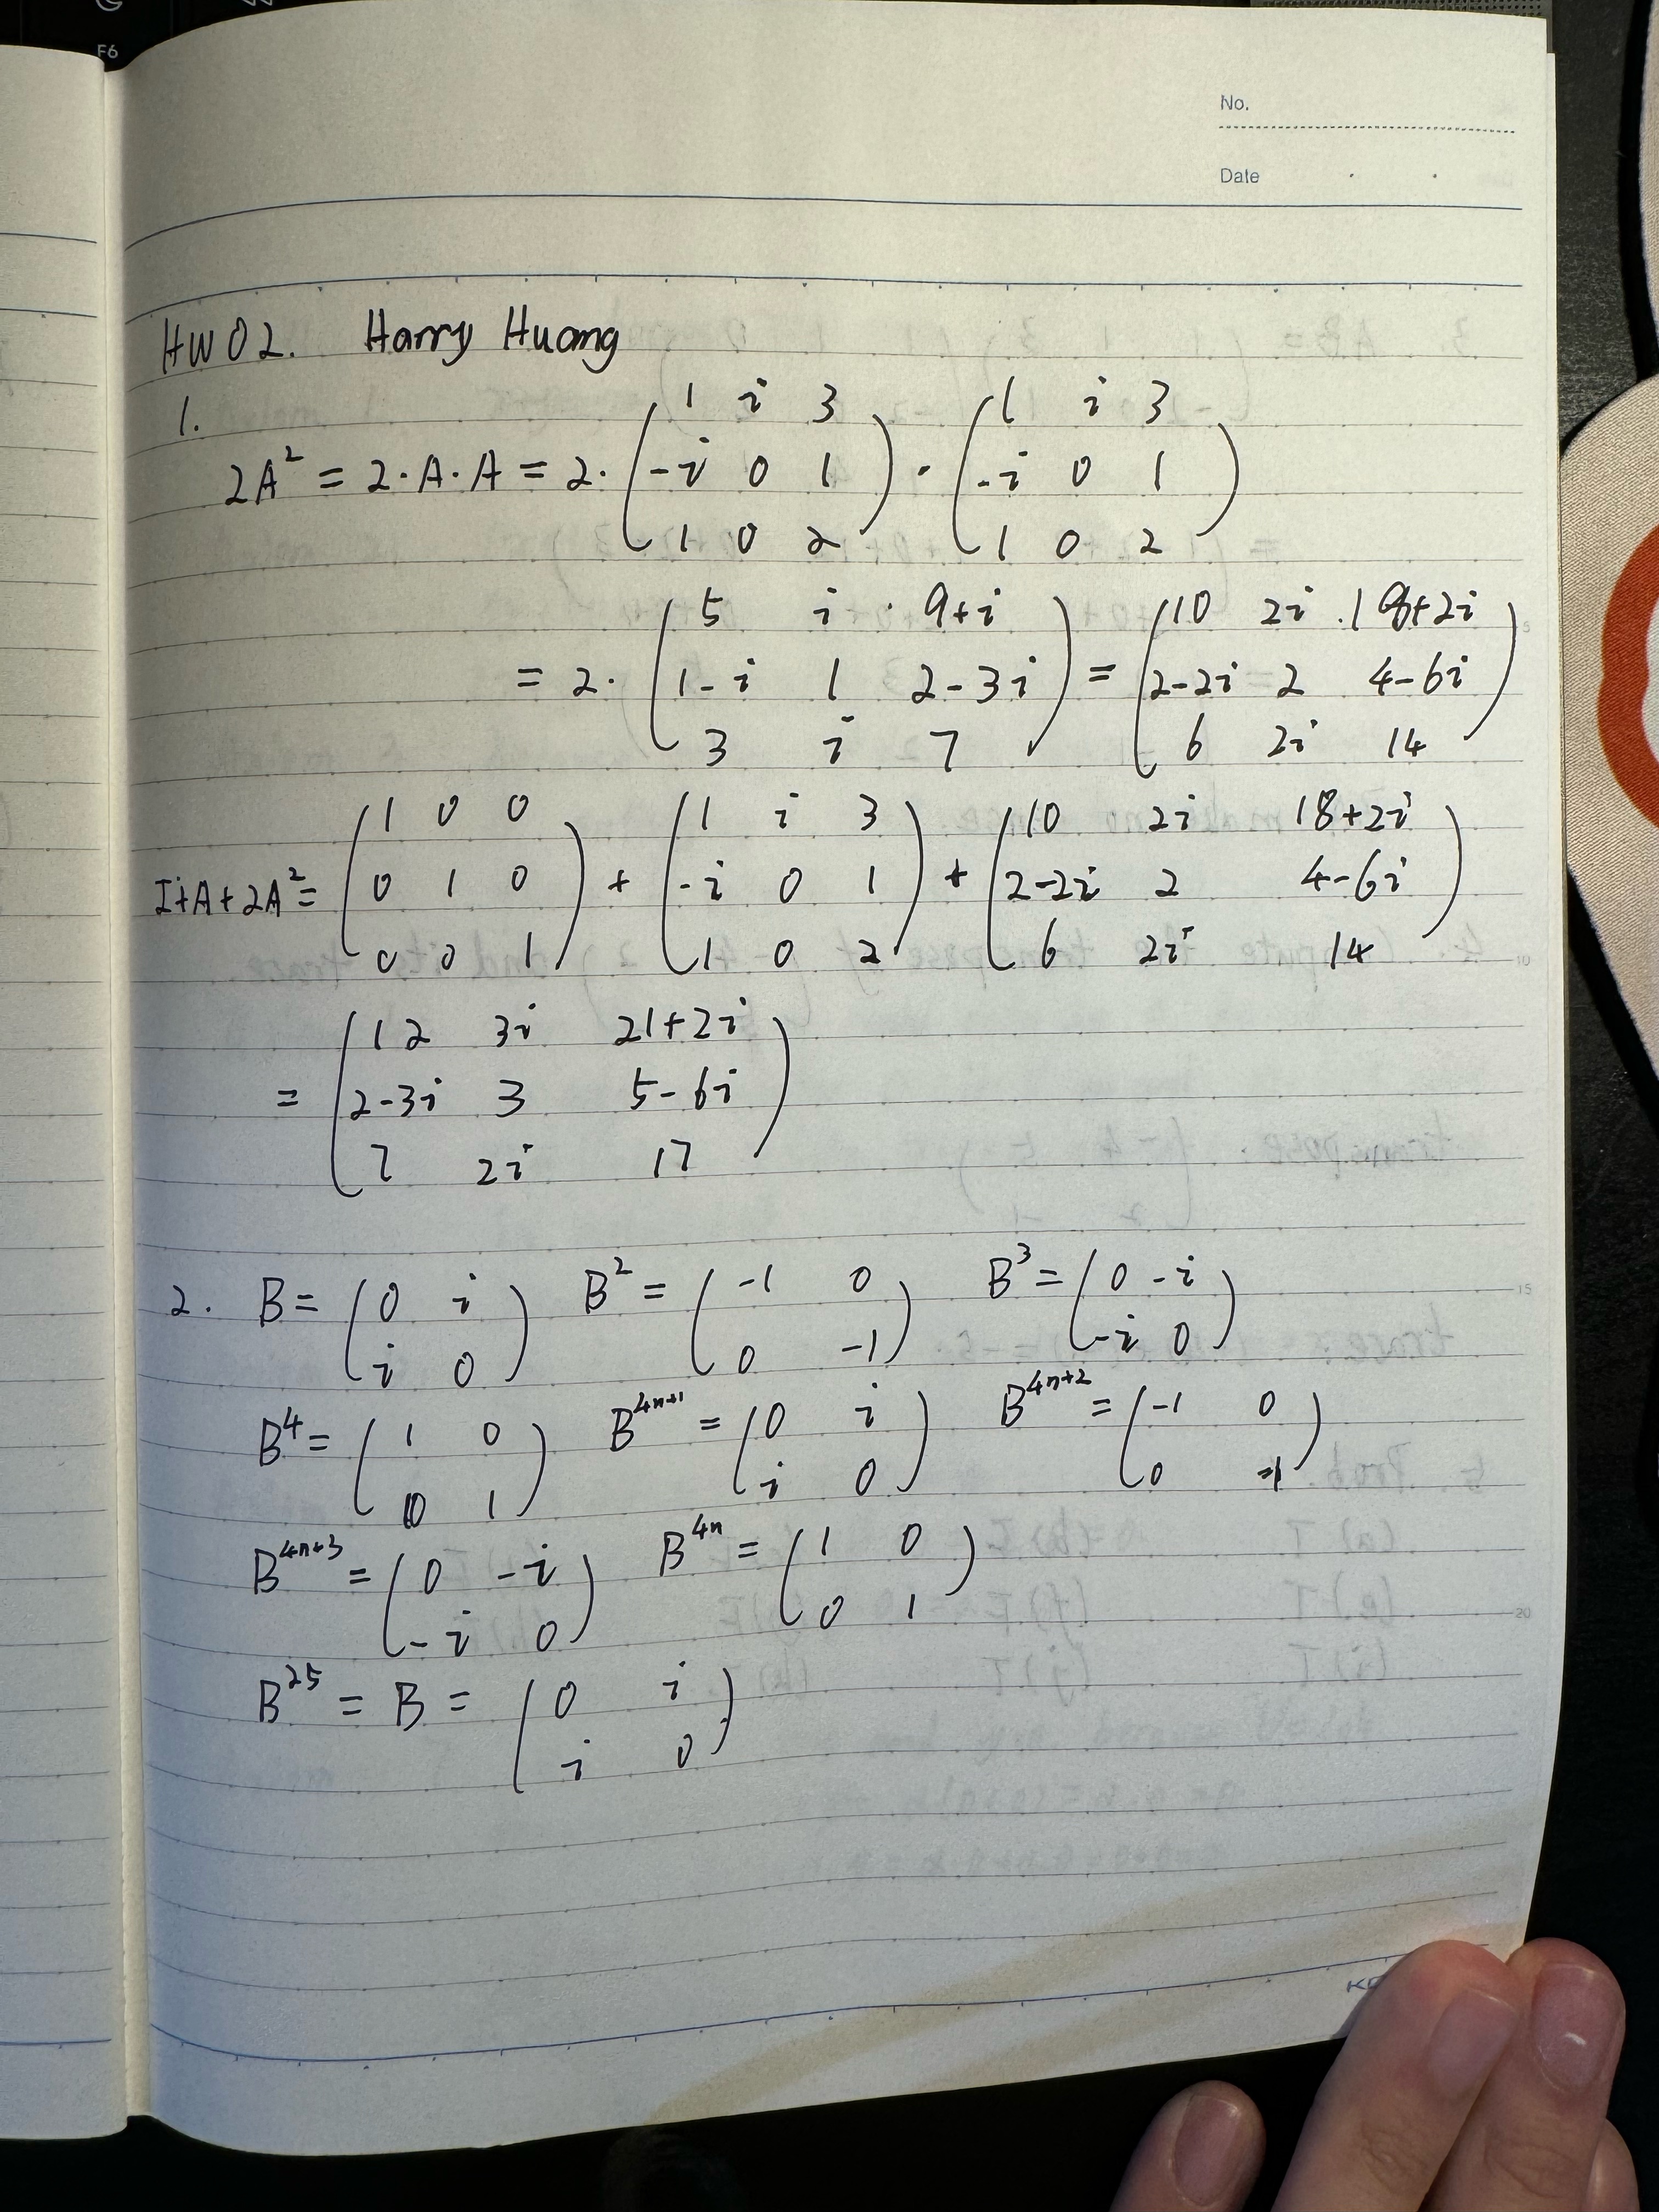 F6
No.
Date
HW02. Harry Huang
1.
2A² = 2·A·A = 2· (1 i 3
-i 0 1
1 0 2) · (1 i 3
-i 0 1
1 0 2)
= 2· (5 i 9+i
1-i 1 2-3i
3 i 7) = (10 2i 18+2i
2-2i 2 4-6i
6 2i 14)
I+A+2A² = (1 0 0
0 1 0
0 0 1) + (1 i 3
-i 0 1
1 0 2) + (10 2i 18+2i
2-2i 2 4-6i
6 2i 14)
= (12 3i 21+2i
2-3i 3 5-6i
7 2i 17)
2. B = (0 i
i 0) B² = (-1 0
0 -1) B³ = (0 -i
-i 0)
B⁴ = (1 0
0 1) B⁴ⁿ⁺¹ = (0 i
i 0) B⁴ⁿ⁺² = (-1 0
0 -1)
B⁴ⁿ⁺³ = (0 -i
-i 0) B⁴ⁿ = (1 0
0 1)
B²⁵ = B = (0 i
i 0)
5
10
15
20